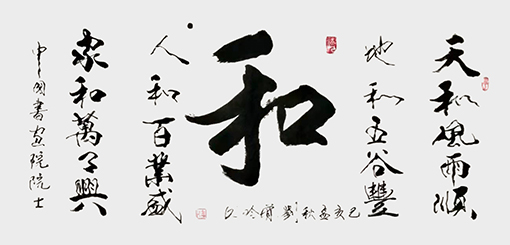 天和風雨順
地和五谷豐
和
人和百業盛
家和萬事興
己亥孟秋
中國書畫院院士